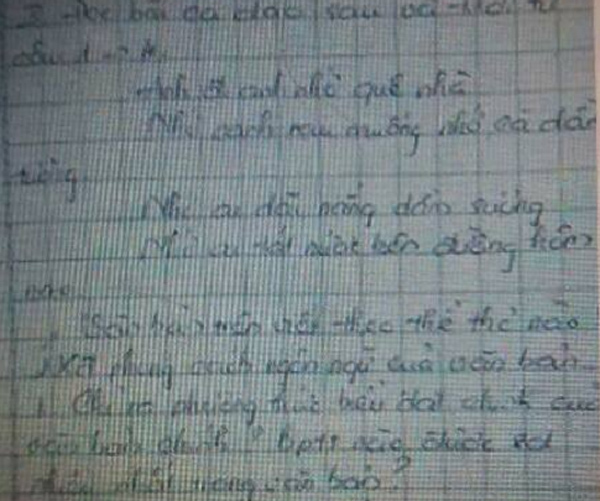 bài ca dao sau và
câu 1 → 4.
Anh đi anh nhớ quê nhà
Nhớ canh rau muống nhớ cà dầm
tương
Nhớ ai dãi nắng dầm sương
Nhớ ai tát nước bên đường hôm
nao
Văn bản trên viết theo thể thơ nào
phong cách ngôn ngữ của văn bản
Chỉ ra phương thức biểu đạt chính của
văn bản chính? bptt nào được
nhất trong văn bản?